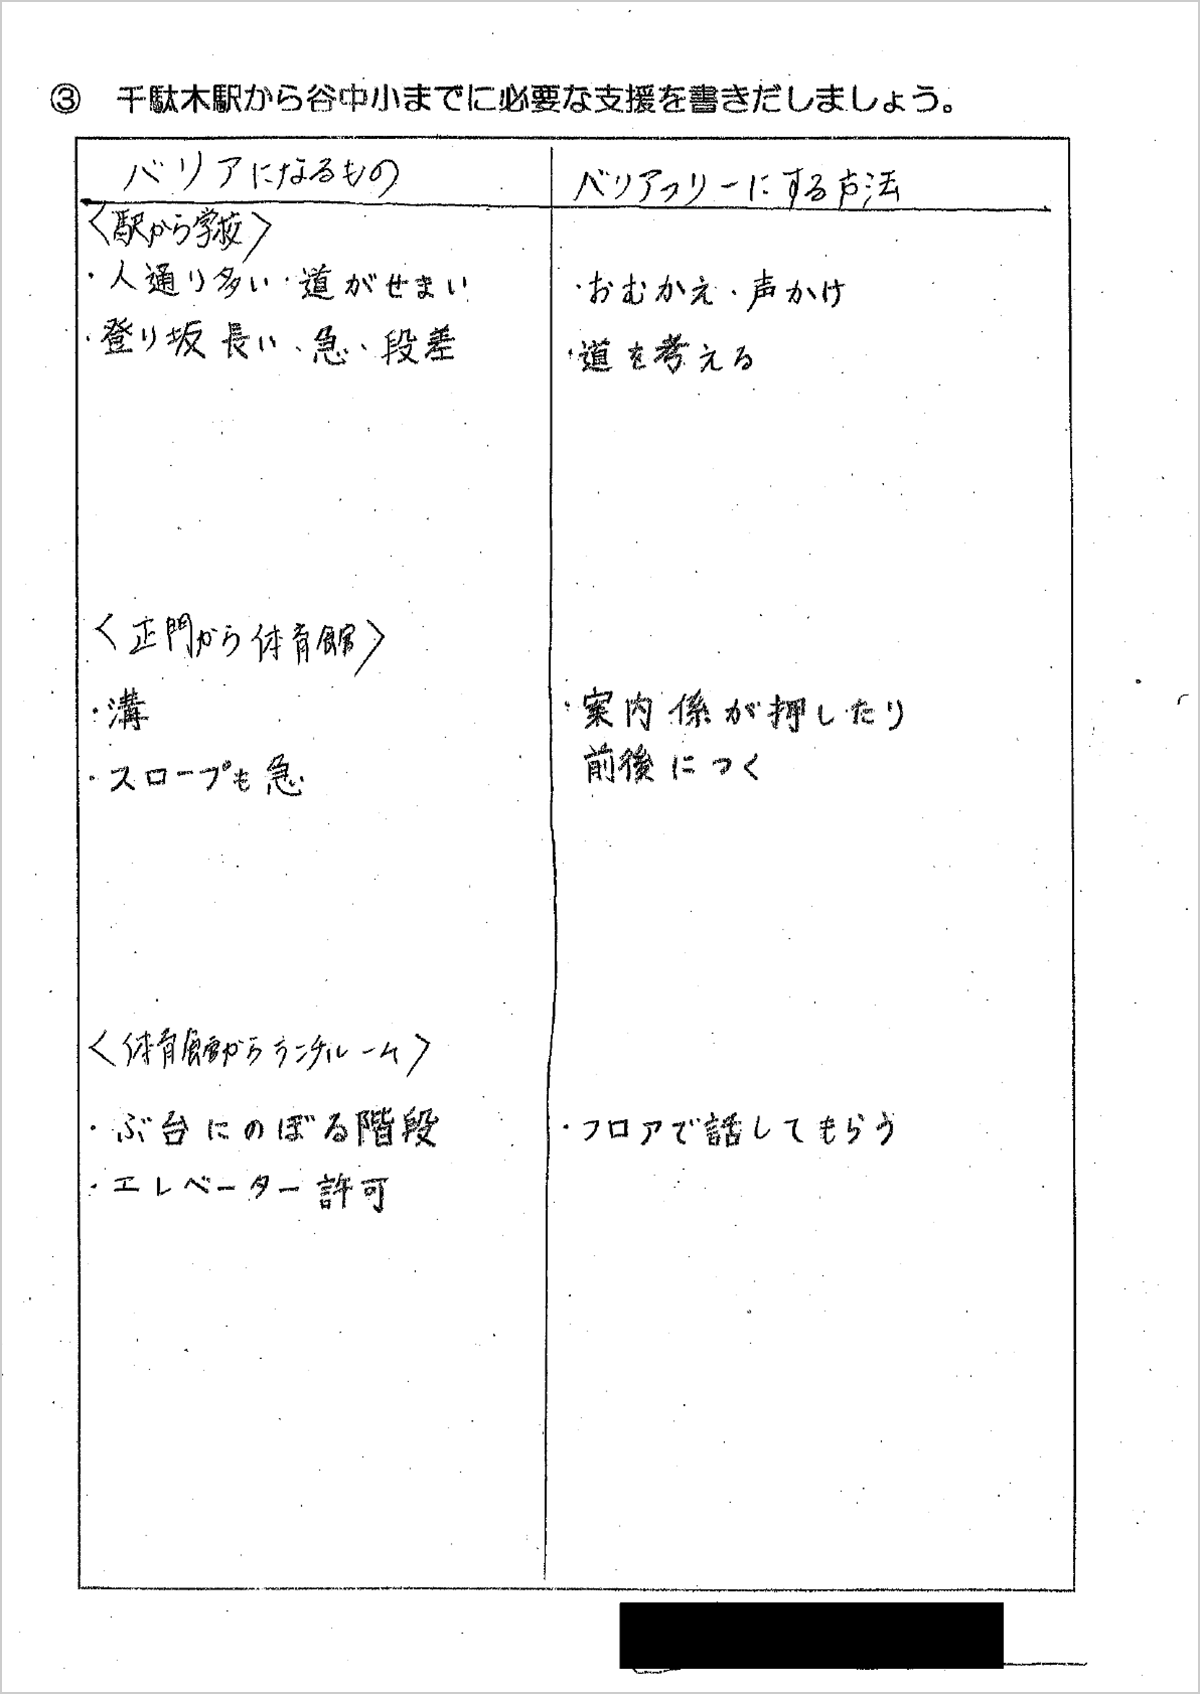 ③ 千駄木駅から谷中小までに必要な支援を書きだしましょう。
バリアになるもの
バリアフリーにする方法
〈駅から学校〉
・人通り多い・道がせまい
・おむかえ・声かけ
・登り坂長い、急、段差
・道を考える
〈正門から体育館〉
・溝
・案内係が押したり
前後につく
・スロープも急
〈体育館からランチルーム〉
・ぶ台にのぼる階段
・フロアで話してもらう
・エレベーター許可